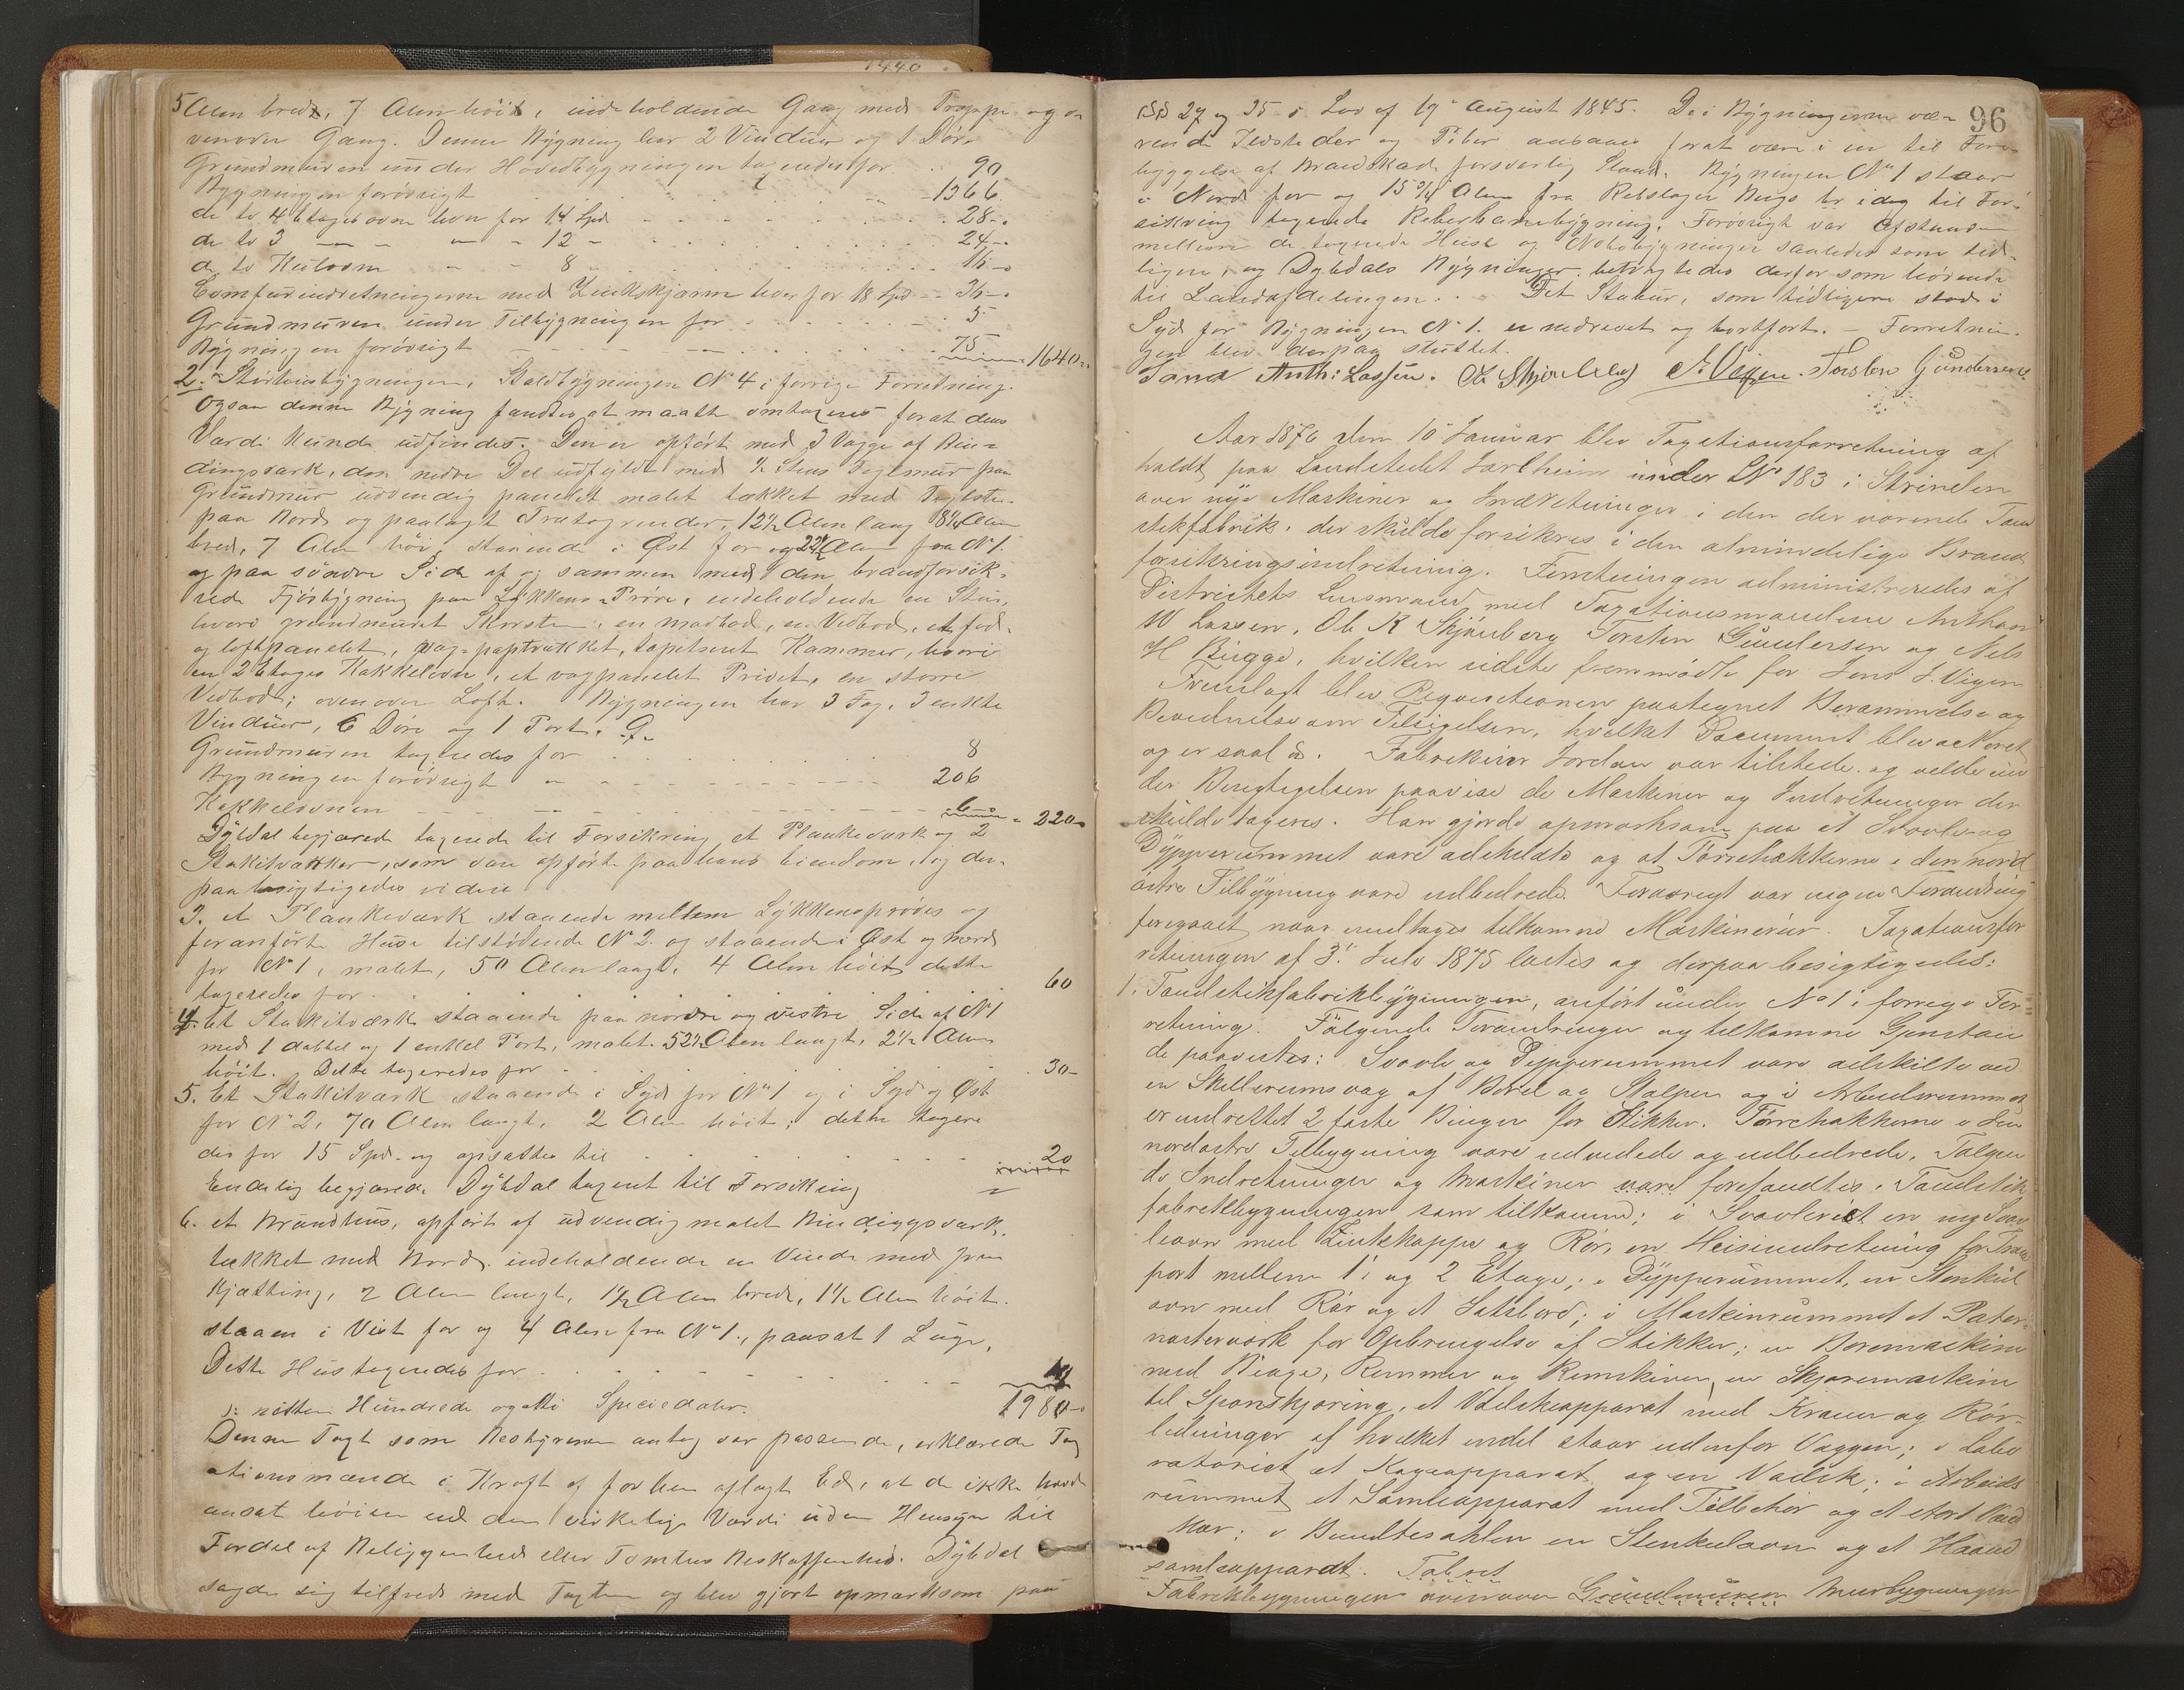 1440
5 Alen bred, 7 Alen høi, indeholdende Gang med Trappe og o-
venover Gang. Denne Bygning har 2 Vinduer og 1 Dør.
Grundmuren under Hovedbygningen toges for . . 90
Bygningen forøvrigt . . . 1366
de to 4 Etages ovne hver for 14 Spd . . . 28-"
de to 3 — " — " - 12 - . . . 24-"
de to Kulovne - - 8 . . . 16-"
Comfurindretningerne med Zinkskjærm hver for 18 Spd - 36-"
Grundmuren under Tilbygningen for . . . 5
Bygningen forøvrigt . . . 75 1640
2. Størhusbygningen, Staldbygningen No 4 i forrige Forretning.
Ogsaa denne Bygning fandtes at maatte omtaxeres forat dens
Værdi kunde udfindes. Den er opført med 3 Vægge af Bin-
dingsværk, den nedre Del udfyldt med ½ Stens Teglmur paa
Grundmur udvendig panelet malet tækket med Teglsten
paa Bord og paalagt Trætagrender, 12½ Alen lang 8¼ Alen
bred, 7 Alen høi, staaende i Øst for og 22½ Alen fra No 1.
og paa søndre Side af og sammen med den brandforsik-
rede Fjøsbygning paa Lykkens-Prøve, indeholdende en Stue,
hvori grundmuret Skorsten, en madbod, en Vedbod, et fod-
og loftpanelet, væg-paptrukket, tapetseret Kammer, hvori
en 2 Etages Kakkelovn, et vægpanelet Privet, en større
Vedbod; ovenover Loft. Bygningen har 3 Fag, 3 enkte
Vinduer, 6 Døre og 1 Port.
Grundmuren toges for . . . 8
Bygningen forøvrigt - - - 206
Kakkelovnen - - - 6 220
Dybdal begjærede tagende til Forsikring et Plankeværk og 2
Stakitværker, som var opførte paa hans Eiendom, og der-
paa besigtigedes videre
3. et Plankeværk staaende mellem Lykkensprøves og
foranførte Huse tilstødende No 2. og staaende i Øst og Nord
for No 1, malet, 50 Alen langt, 4 Alen høit dette
taxeredes for . . . 60
4. Et Stakitværk staaende paa nordre og vestre Side af No 1
med 1 dobbel og 1 enkel Port, malet 52½ Alen langt, 2½ Alen
høit. Dette taxeredes for . . . 30-
5. Et Stakitværk staaende i Syd for No 1 og i Syd og Øst
for No 2, 70 Alen langt, 2 Alen høit; dette taxere
des for 15 Spd. og opsattes til . . . 20
Endelig begjærede Dybdal taxeret til Forsikring
6. et Brøndhus, opført af udvendig malet Bindingsværk,
tækket med Bord. indeholdende en Vinde med jern
Kjætting, 2 Alen langt, 1½ Alen bredt, 1½ Alen høit.
staaen i Vest for og 4 Alen fra No 1., paasat 1 Luge,
Dette Hus taxeredes for . . .
): nitten Hundrede og otti Speciedaler. 1980-
Denne Taxt som Bestyreren antog var passende, erklærede Tax
ationsmænde i Kraft af forhen aflagt Ed, at de ikke havde
ansat høiere end den virkelige Værdi uden Hensyn til
Fordel af Beliggenhed eller Tomtens Beskaffenhed. Dybdal
sagde sig tilfreds med Taxten og blev gjort opmærksom paa
96
§§ 27 og 35 i Lov af 19 August 1845. De i Bygningerne væ-
rende Ildsteder og Piber ansaaes forat være i en til Fore-
byggelse af Brandskade forsvarlig Stand. Bygningen No 1 staar
i Nord for og 15¾ Alen fra Rebslager Bergs br idag til For-
sikring tagende Reberbanebygning. Forøvrigt var Afstanden
mellem de tagende Huse og Nabobygninger saaledes som tid-
ligere, og Dybdals Bygninger betragtedes derfor som hørende
til Landafdelingen. - Det Stabur, som tidligere stod i
Syd for Bygningen No 1. er nedrevet og bortført. - Forretnin-
gen blev derpaa sluttet.
Sand Anth: Lassen. O. K. Skjønberg J. Vigen. Torsten Gundersen.
Aar 1876 den 10 Januar blev Taxationsforretning af
holdt paa Landstedet Jarlheim under LNo 183 i Strinden
over nye Maskiner og Indretninger i den der værende Tænd
stikfabrik. der skulde forsikres i den almindelige Brand
forsikringsindretning. Forretningen administreredes af
Districtets Lensmand med Taxationsmændene Anthon
W Lassen, Ole K Skjønberg Torsten Gundersen og Nels
H Bugge, hvilken sidste fremmødte for Jens J. Vigen
Fremlagt blev Reqvisitionen paategnet Berammelse og
Bevidnelse om Tilsigelsen, hvilket Document blev acteret
og er saal. Fabrikeier Jordan var tilstede og vilde un
der Besigtigelsen paavise de Maskiner og Indretninger der
skulde taxeres. Han gjorde opmærksom paa at Svovl- og
Dypperummet vare adskildte og at Tørrehækkerne i den nord
østre Tilbygning vare udbedrede. Forøvrigt var ingen Forandring
foregaaet naar undtages tilkomne Maskinerier. Taxationsfor
retningen af 3. Juli 1875 læstes og derpaa besigtigedes:
1. Tændstikfabrikbygningen, anført under No 1 i forrige For-
retning. Følgende Forandringer og tilkomne Gjenstan
de paavistes: Svovle og Dypperummet vare adskilte ved
en Skillerumsvæg af Bord og Stolper og i Arbeidsrummet
er indrettet 2 faste Binger for Stikker. Tørrehækkerne i den
nordøstre Tilbygning vare udvidede og udbedrede. Følgen
de Indretninger og Maskiner vare forefandtes i Tændstik
fabrikbygningen som tilkomne; i Svovleriet en ny Svov
leovn med Zinkkappe og Rør, en Heisindretning for Trans
port mellem 1' og 2 Etage; i Dypperummet, en Stenkul
ovn med Rør og et Satsbord; i Maskinrummet et Pater-
nosterværk for Opbringelse af Stikker; en Boremaskine
med Biage, Remmer og Remskiver, en Skjæremaskine
til Sponskjæring, et Vadskeapparat med Kraner og Rør-
ledninger af hvilket endel staar udenfor Væggen; i Labo
ratoriet et Kogeapparat og en Vadsk; i Arbeids
rummet et Samleapparat med Tilbehør og et stort Vand
kar; i Bundtesahlen en Stenkulovn og et Haand
samleapparat. Fabrik
Fabrikbygningen ovenover Grundmuren Murbygningen